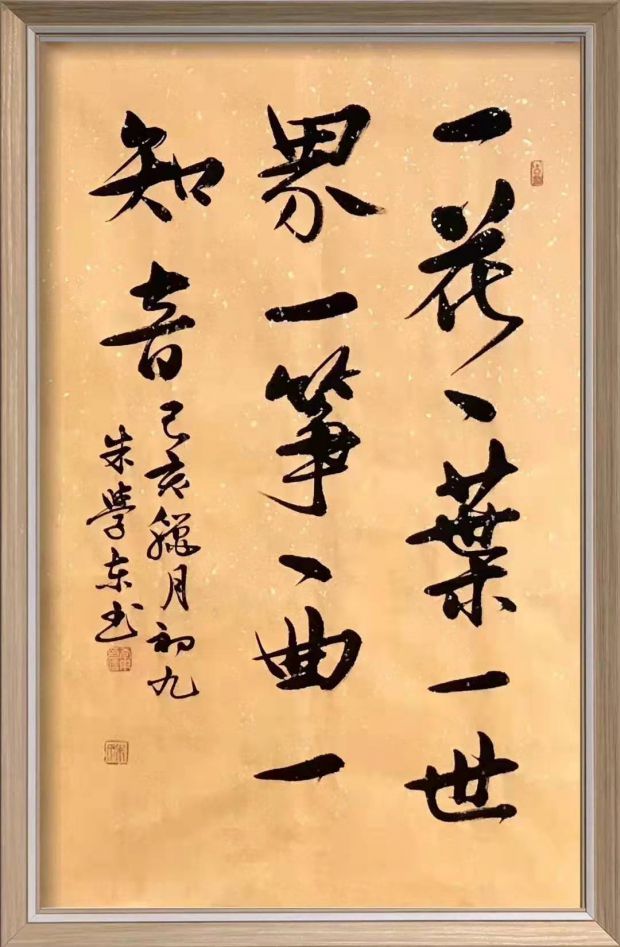 一花、葉一世
界一箏、曲一
知音
己亥臘月初九
朱學东书